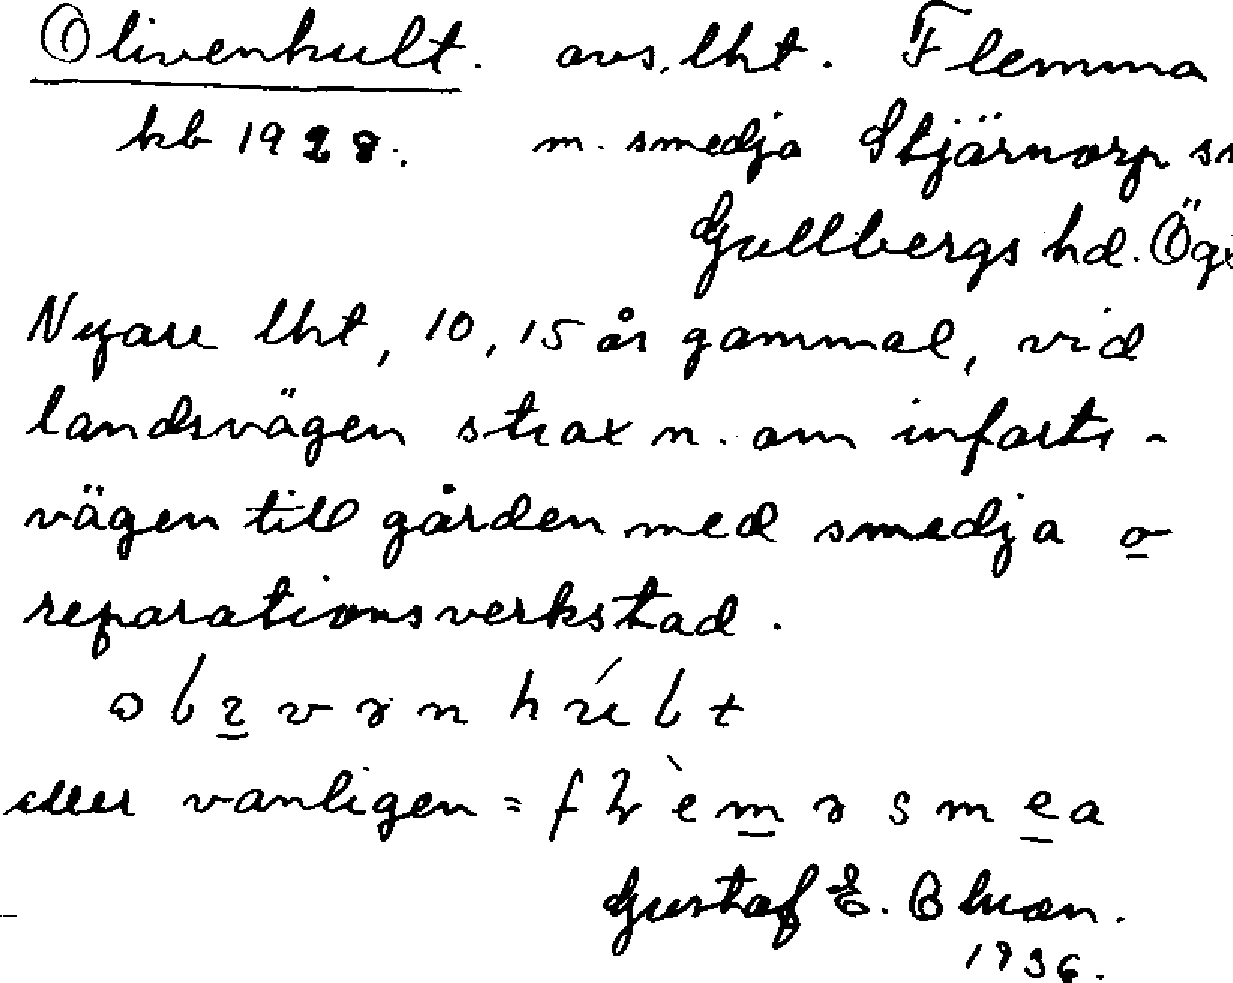 Olivenhult. avs. lht. Flemma
kb 1928. m. smedja Stjärnorp sn
Gullbergs hd. Ög.
Nyare lht, 10, 15 år gammal, vid
landsvägen strax n. om infarts-
vägen till gården med smedja o
reparationsverkstad.
eller vanligen =
Gustaf E.
1936.